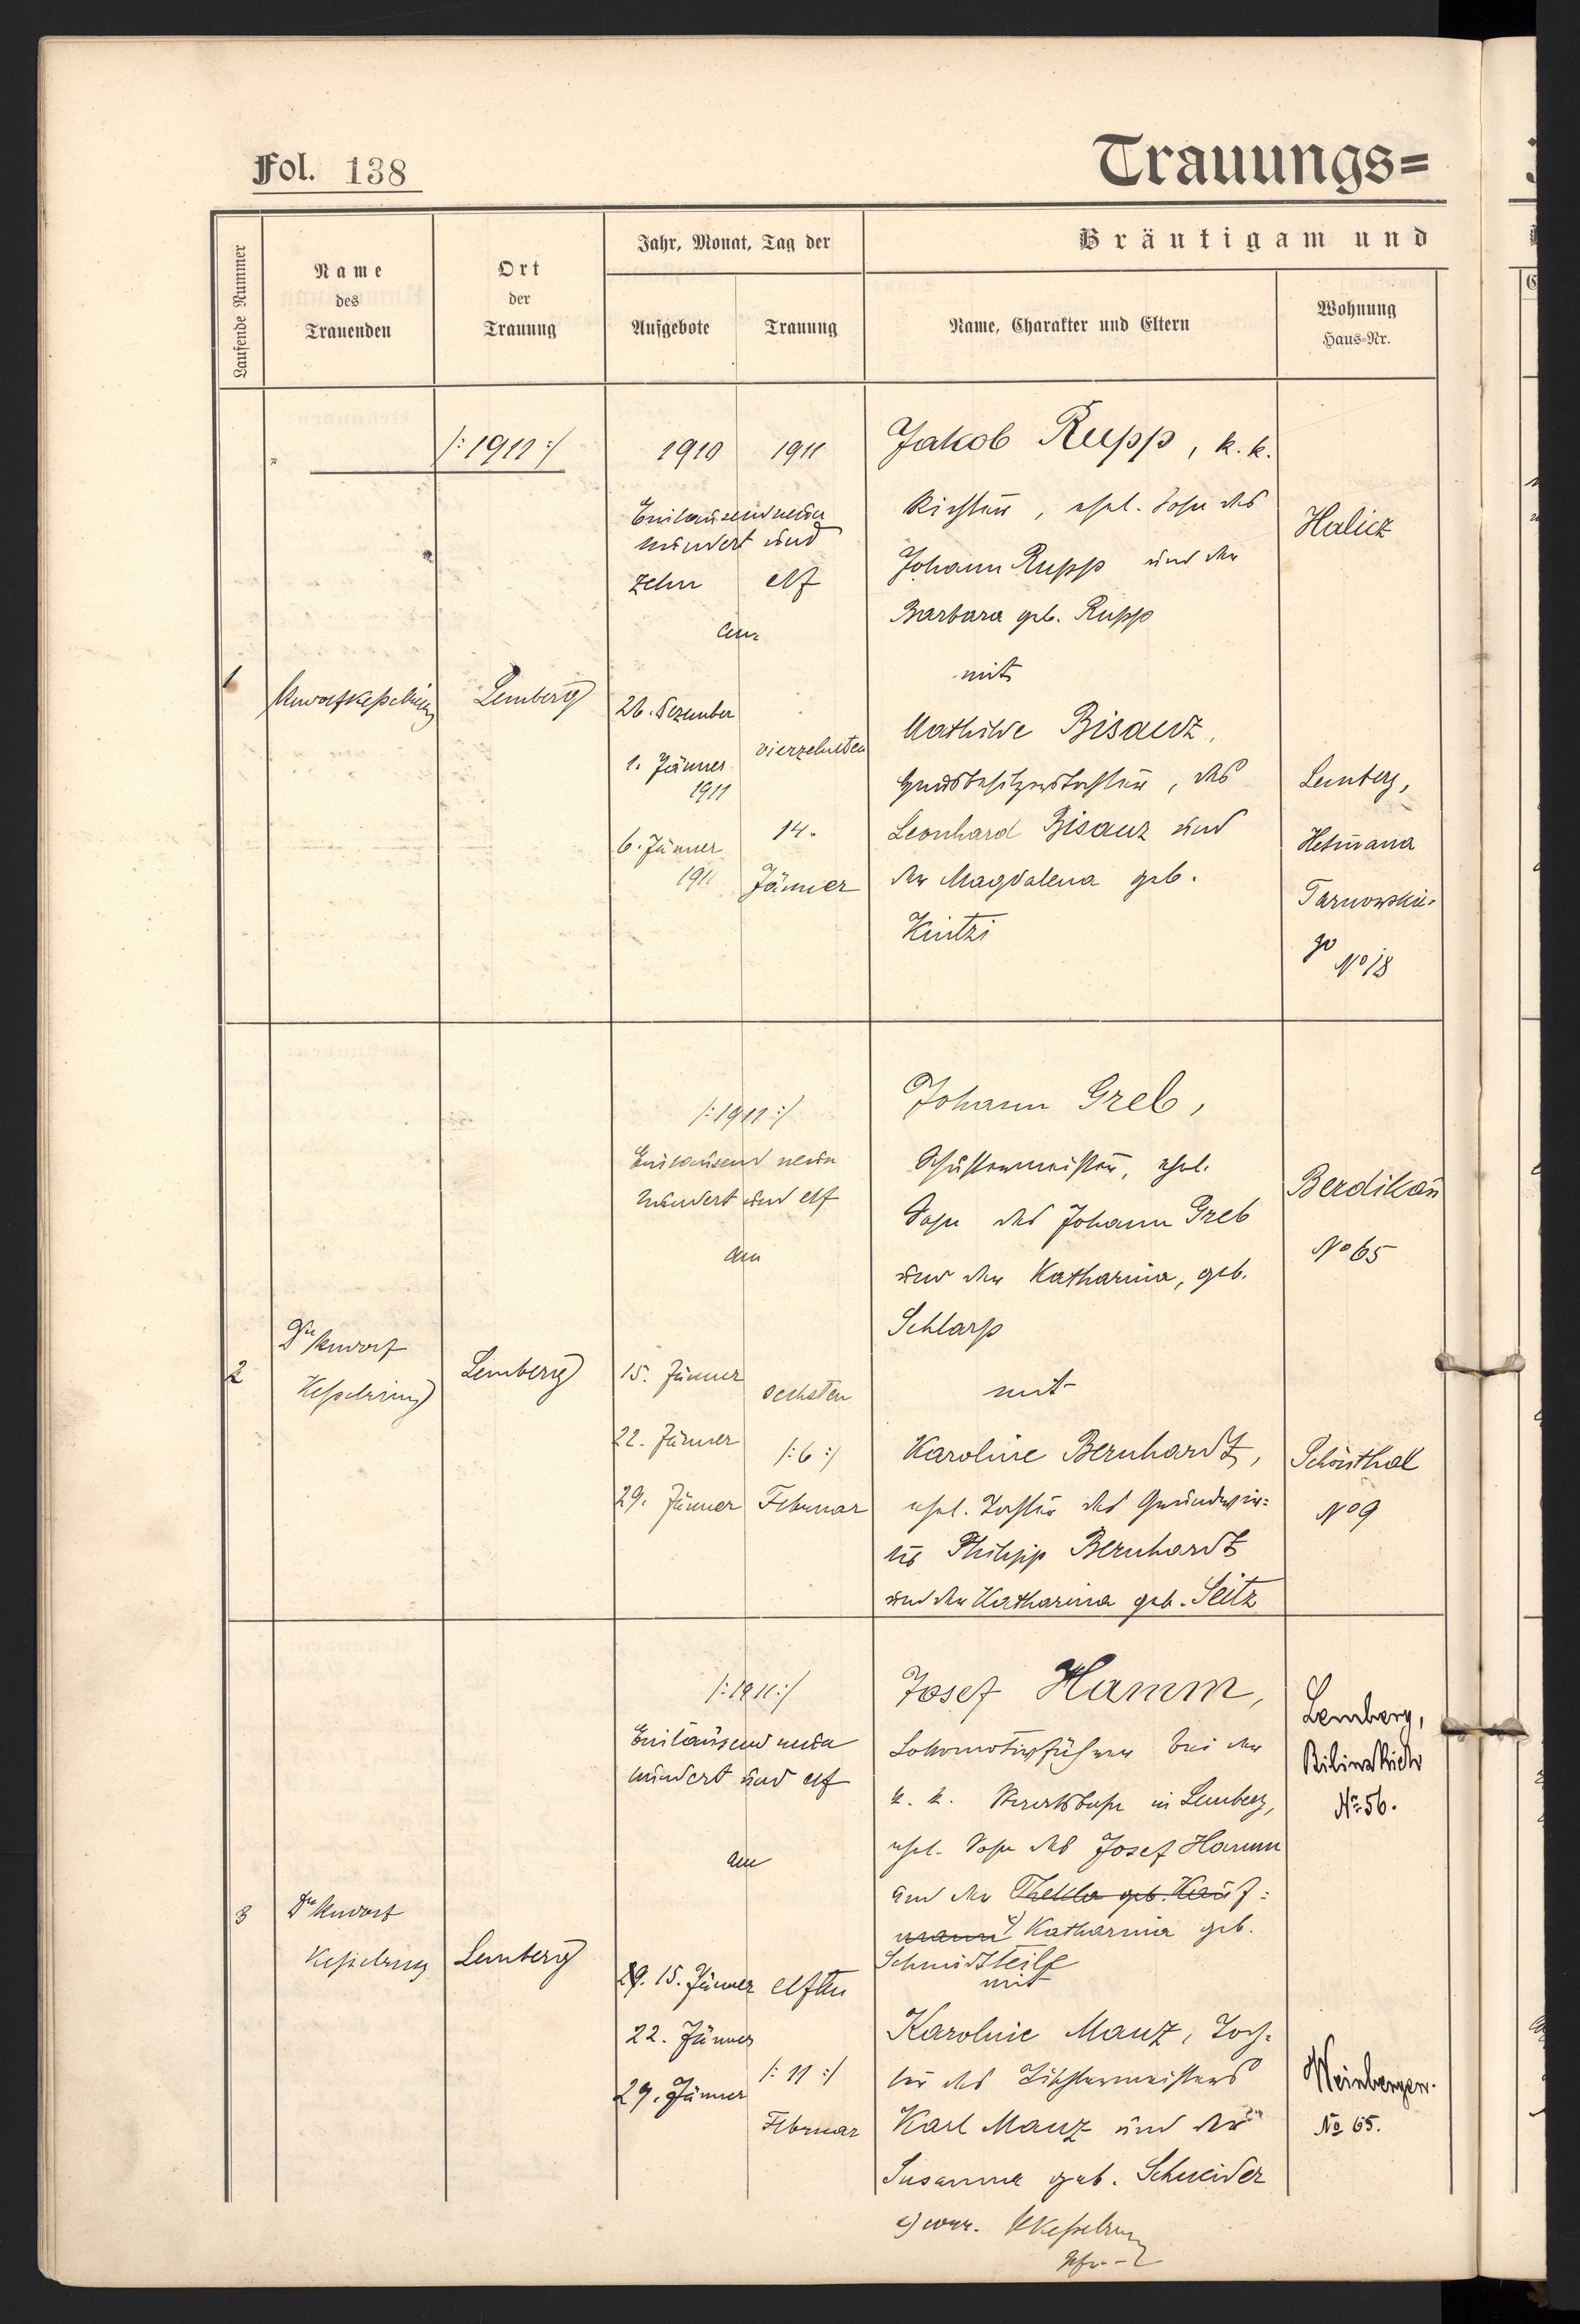 Fol. 138
Trauungs=
Laufende Nummer
Name
des
Trauenden
Ort
der
Trauung
Jahr, Monat, Tag der
Aufgebote
Trauung
Bräutigam und
Name, Charakter und Eltern
Wohnung
Haus-Nr.
/: 1911 :/
1910
1911
Eintausendneun
hundert und
zehn
elf
am
1
Lemberg
26. Dezember
1. Jänner
1911
6. Jänner
1911
vierzehnten
14.
Jänner
Jakob Rupp, k. k.
Richter, ehel. Sohn des
Johann Rupp und der
Barbara geb. Rupp
mit
Mathilde Bisanz,
Grundbesitzerstochter, des
Leonhard Bisanz und
der Magdalena geb.
Kintzi
Halicz
Lemberg,
Hetmana
Tarnowskie-
go
No 18
/: 1911 :/
Eintausend neun
hundert und elf
am
2
Dr Rudolf
Kesselring
Lemberg
15. Jänner
22. Jänner
29. Jänner
sechsten
/: 6 :/
Februar
Johann Greb,
Schustermeister, ehel.
Sohn des Johann Greb
und der Katharina, geb.
Schlarp
mit
Karoline Bernhardt,
ehel. Tochter des Grundwir=
ts Philipp Bernhardt
und der Katharina geb. Seitz
Berdikau
No 65
Schönthal
No 9
/: 1911 :/
Eintausend neun
hundert und elf
am
3
Dr Rudolf
Kesselring
Lemberg
29. 15. Jänner
22. Jänner
29. Jänner
elften
/: 11 :/
Februar
Josef Hamm,
Lokomotivführer bei der
k. k. Staatsbahn in Lemberg,
ehel. Sohn des Josef Hamm
und der Thekla geb. Kauf=
mann Katharina geb.
mit
Karoline Manz, Toch=
ter des Tischlermeisters
Karl Manz und der
Susanna geb. Schneider
Lemberg,
No 56.
Weinbergen.
No 65.
corr. Kesselring